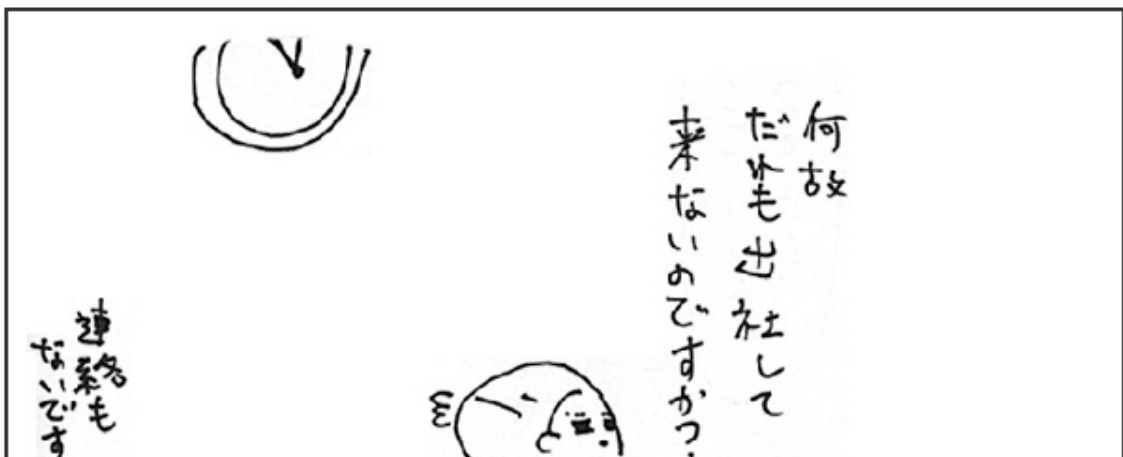 何故
だれも出社して
来ないのですか?
連絡も
ないです